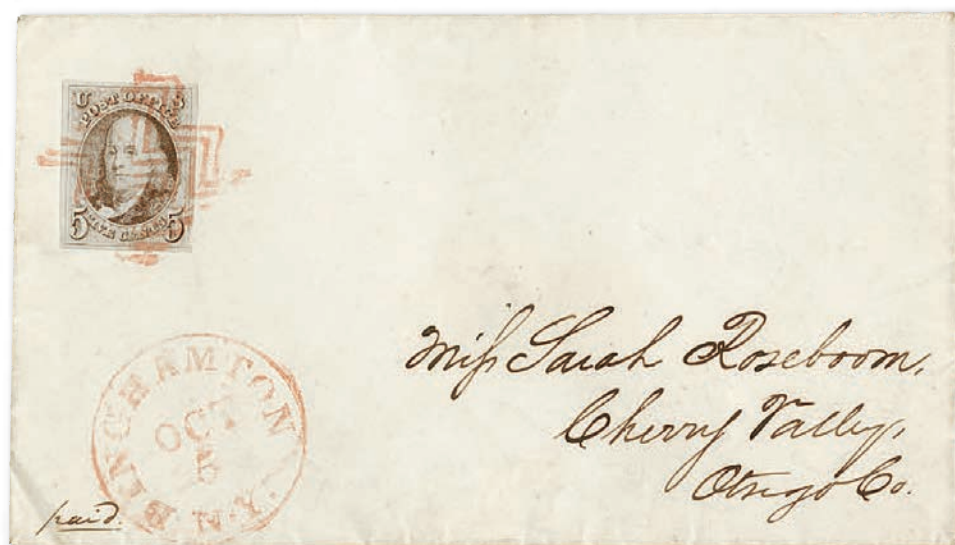 U S
POST OFFICE
5 FIVE CENTS 5
BINGHAMTON
OCT
5
N.Y.
Miſs Sarah Roseboom,
Cherry Valley,
Otsego Co.
paid.